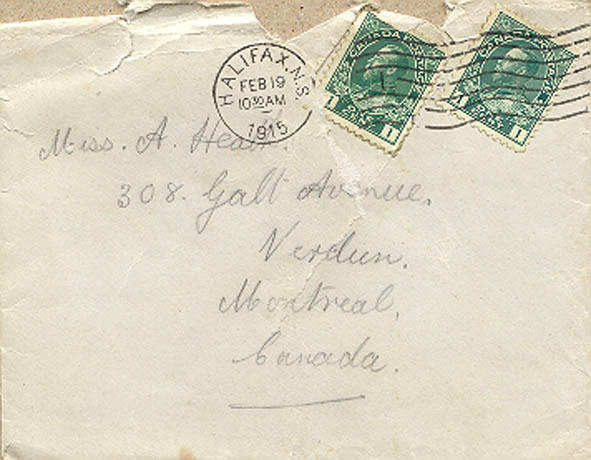 HALIFAX, N.S.
FEB 19
10 30 AM
1915
CANADA POSTAGE
1 1
CANADA POSTAGE
1 1
Miss. A.
308. Galt Avenue.
Verdun.
Montreal.
Canada.